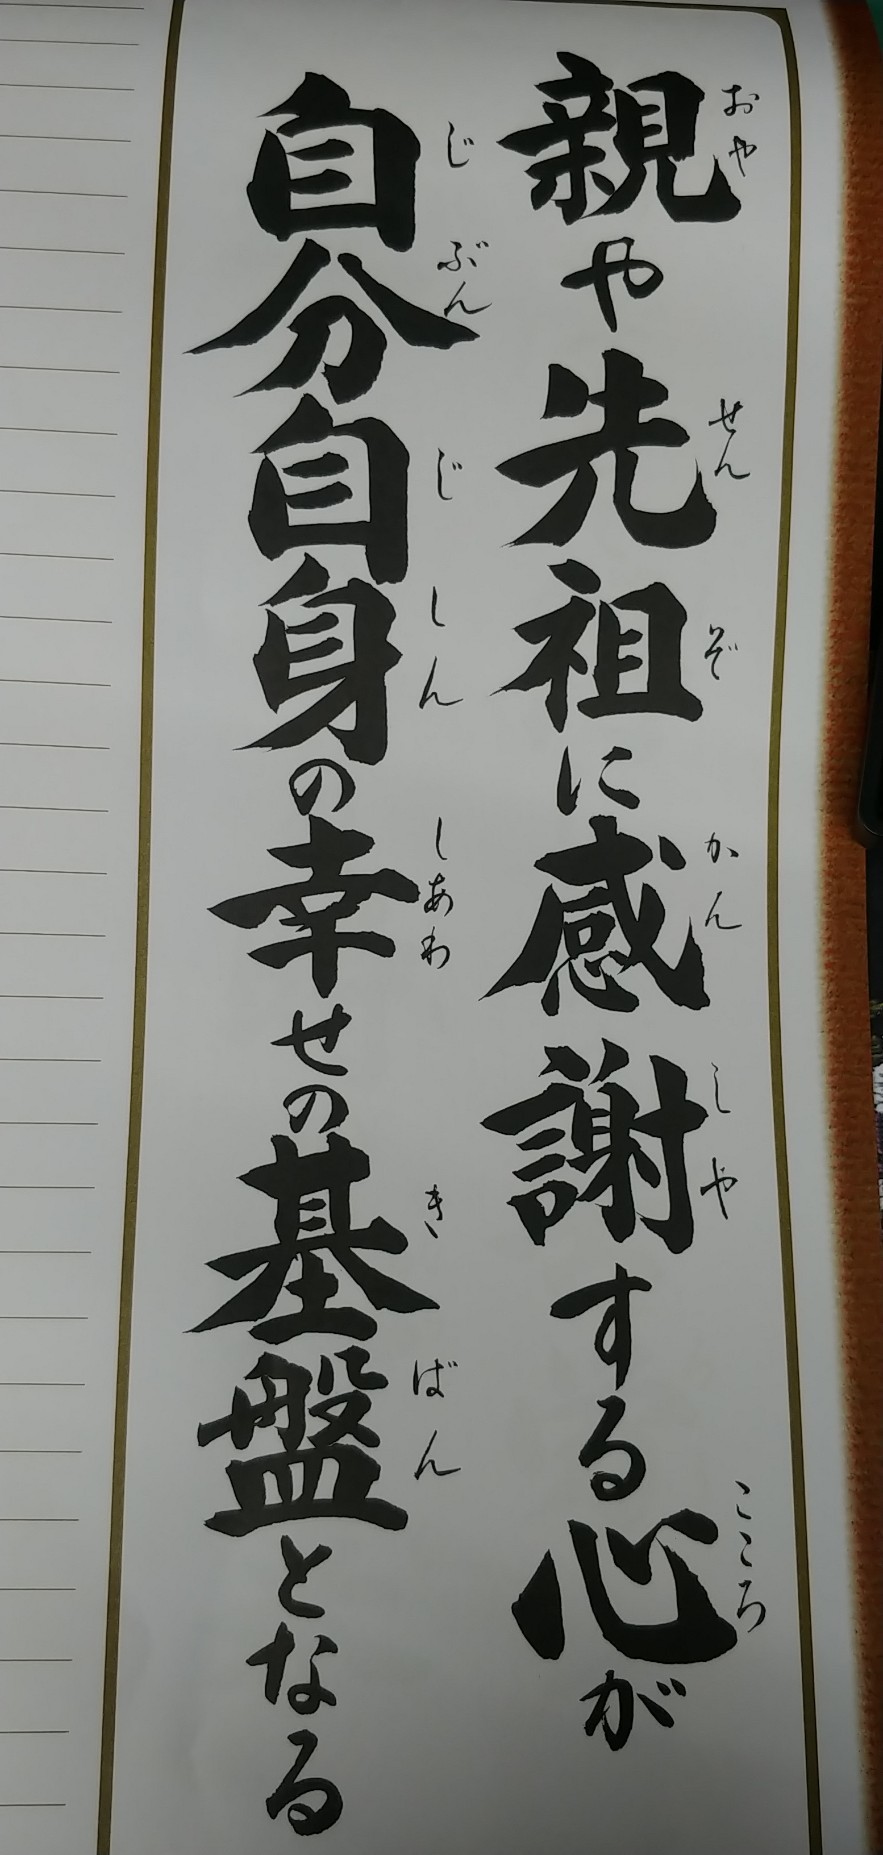 親や先祖に感謝する心が
おや せんぞ かんしや こころ
自分自身の幸せの基盤となる
じぶんじしん しあわ きばん